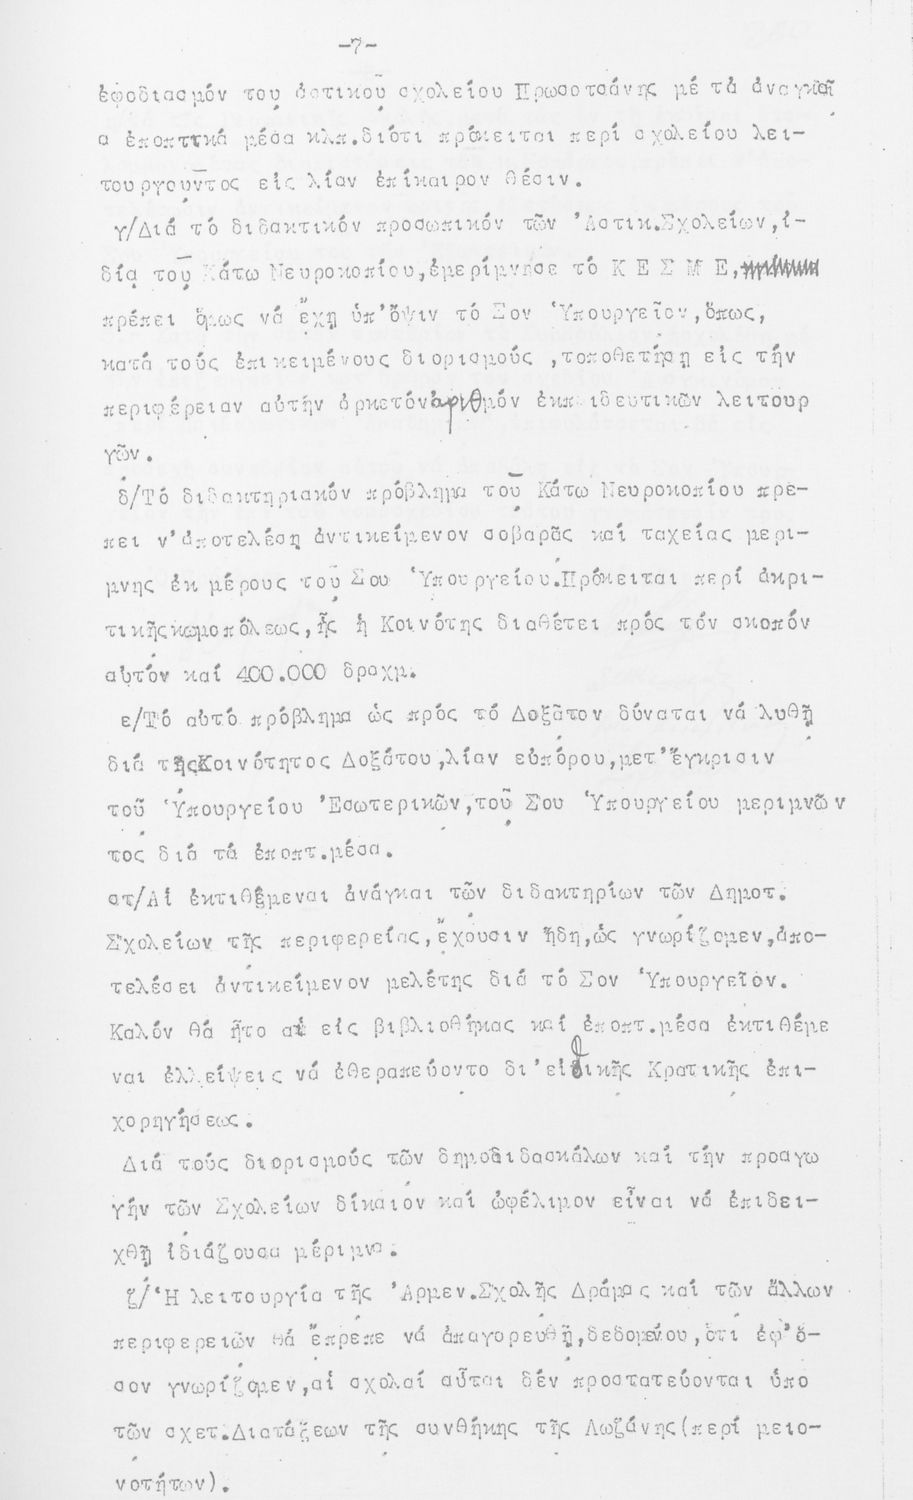 -7-
ἐφοδιασμόν τοῦ ἀστικοῦ σχολείου Πρωσοτσάνης μέ τά ἀναγκαῖ
α ἐποπτικά μέσα κλπ.διότι πρόκειται περί σχολείου λει-
τουργοῦντος εἰς λίαν ἐπίκαιρον θέσιν.
γ/Διά τό διδακτικόν προσωπικόν τῶν 'Αστικ.Σχολείων,ἰ-
δίᾳ τοῦ Κάτω Νευροκοπίου,ἐμερίμνησε τό Κ Ε Σ Μ Ε,
πρέπει ὅμως νά ἔχῃ ὑπ'ὄψιν τό Σον Ὑπουργεῖον,ὅπως,
κατά τούς ἐπικειμένους διορισμούς ,τοποθετήσῃ εἰς τήν
περιφέρειαν αὐτήν ἀρκετόν ἀριθμόν ἐκπαιδευτικῶν λειτουρ
γῶν.
δ/Τό διδακτηριακόν πρόβλημα τοῦ Κάτω Νευροκοπίου πρέ-
πει ν'ἀποτελέσῃ ἀντικείμενον σοβαρᾶς καί ταχείας μερί-
μνης ἐκ μέρους τοῦ Σου Ὑπουργείου.Πρόκειται περί ἀκρι-
τικῆς κωμοπόλεως,ἧς ἡ Κοινότης διαθέτει πρός τόν σκοπόν
αὐτόν καί 400.000 δραχμ.
ε/Τό αὐτό πρόβλημα ὡς πρός τό Δοξᾶτον δύναται νά λυθῇ
διά τῆς Κοινότητος Δοξάτου,λίαν εὐπόρου,μετ'ἔγκρισιν
τοῦ Ὑπουργείου 'Εσωτερικῶν,τοῦ Σου Ὑπουργείου μεριμνῶν
τος διά τά ἐποπτ.μέσα.
στ/Αἱ ἐκτιθέμεναι ἀνάγκαι τῶν διδακτηρίων τῶν Δημοτ.
Σχολείων τῆς περιφερείας,ἔχουσιν ἤδη,ὡς γνωρίζομεν,ἀπο-
τελέσει ἀντικείμενον μελέτης διά τό Σον Ὑπουργεῖον.
Καλόν θά ἦτο αἱ εἰς βιβλιοθήκας καί ἐποπτ.μέσα ἐκτιθέμε
ναι ἐλλείψεις νά ἐθεραπεύοντο δι'εἰδικῆς Κρατικῆς ἐπι-
χορηγήσεως.
Διά τούς διορισμούς τῶν δημοδιδασκάλων καί τήν προαγω
γήν τῶν Σχολείων δίκαιον καί ὠφέλιμον εἶναι νά ἐπιδει-
χθῇ ἰδιάζουσα μέριμνα.
ζ/Ἡ λειτουργία τῆς 'Αρμεν.Σχολῆς Δράμας καί τῶν ἄλλων
περιφερειῶν θά ἔπρεπε νά ἀπαγορευθῇ,δεδομένου,ὅτι ἐφ'ὅ-
σον γνωρίζομεν,αἱ σχολαί αὗται δέν προστατεύονται ὑπο
τῶν σχετ.Διατάξεων τῆς συνθήκης τῆς Λωζάνης(περί μειο-
νοτήτων).